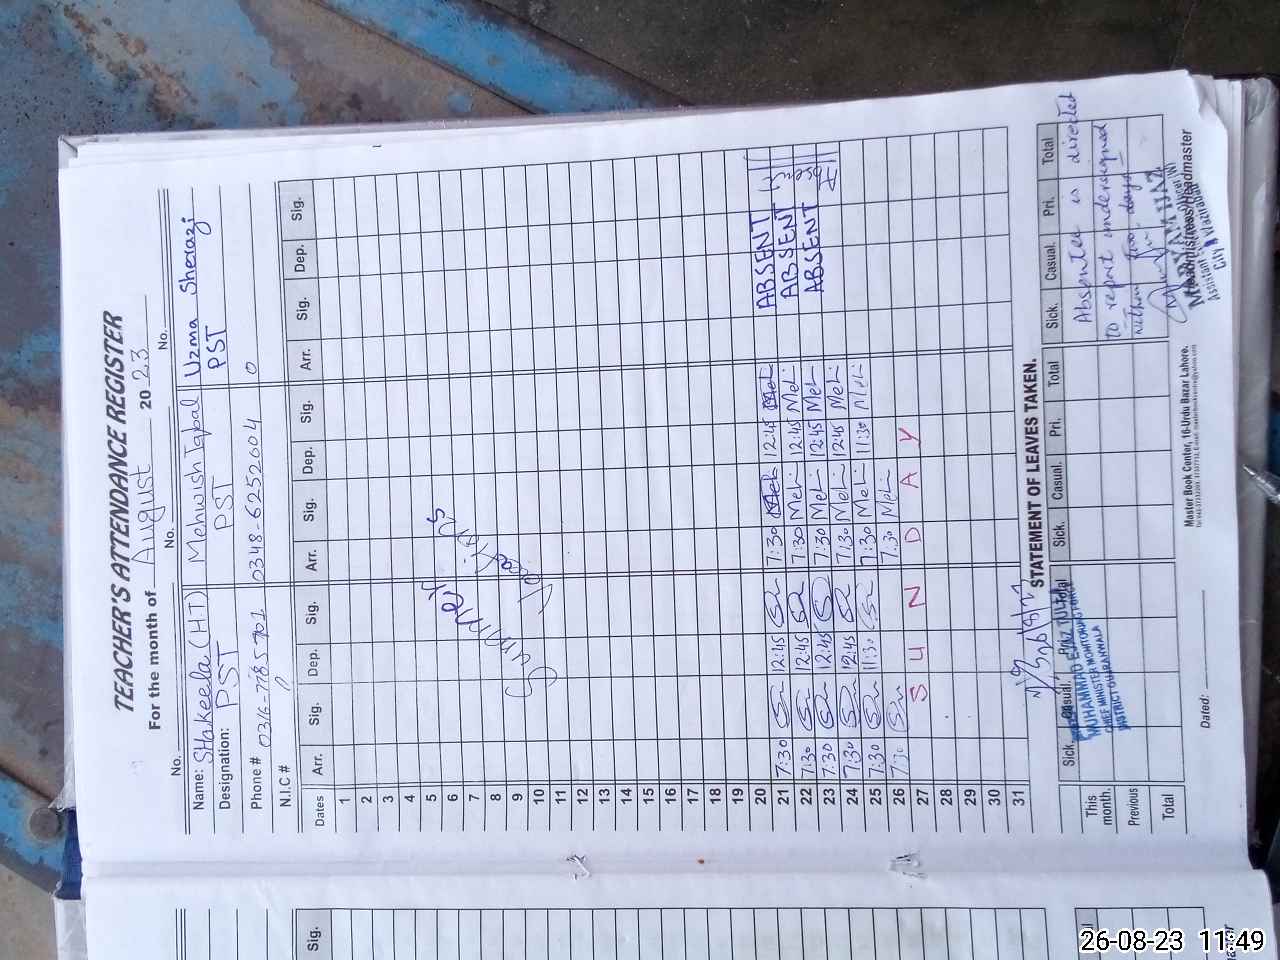 TEACHER'S ATTENDANCE REGISTER
For the month of August 2023
No. No. No.
Name: SHakeela (HT) Mehwish Iqbal Uzma Sherazi
Designation: PST PST PST
Phone # 0348-6252004 0
N.I.C #
Dates Arr. Sig. Dep. Sig. Arr. Sig. Dep. Sig. Arr. Sig. Dep. Sig.
1
2
3
4
5
6
7
8
9
10
Summer
Vacations
11
12
13
14
15
16
17
18
19
20
21 7:30 12:45 7:30 12:45 ABSENT
22 7:30 12:45 7:30 Meh 12:45 Meh ABSENT
23 7:30 12:45 7:30 Meh 12:45 Meh ABSENT
24 7:30 12:45 7:30 Meh 12:45 Meh
25 7:30 11:30 7:30 Meh 11:30 Meh
26 7:30 7:30 Meh
27 S U N D A Y
28
29
30
31
STATEMENT OF LEAVES TAKEN.
Sick. Casual. Pri. Total Sick. Casual. Pri. Total Sick. Casual. Pri. Total
This month.
Previous
Total
MUHAMMAD EJAZ
CHIEF MINISTER MONITORING FORCE
DISTRICT GUJRANWALA
Absentee is directed
to report undersigned
within two days
MARYAM IJAZ
Assistant
City Wazirabad
Headmistress/Headmaster
Dated:
Master Book Center, 16-Urdu Bazar Lahore.
Sig.
26-08-23 11:49